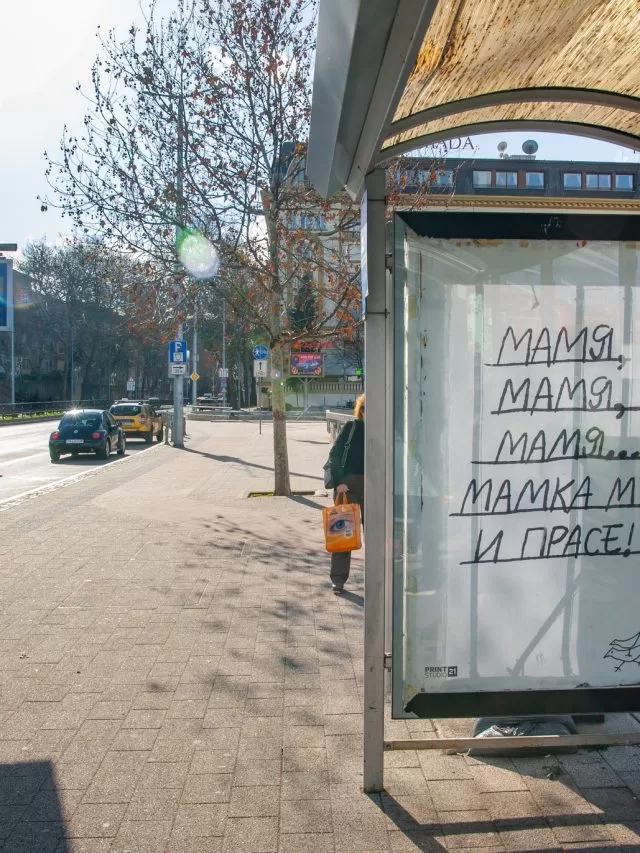 ADA
P
МАМЯ,
МАМЯ,
МАМЯ....
МАМКА М
И ПРАСЕ!
PRINT
STUDIO 21